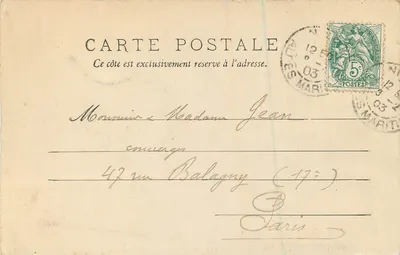 CARTE POSTALE
Ce côté est exclusivement réservé à l'adresse.
5
POSTES
12
03
ALPES MARIT
03
S MARIT
Monsieur & Madame Jean
concierges
47 rue Balagny (17e)
Paris